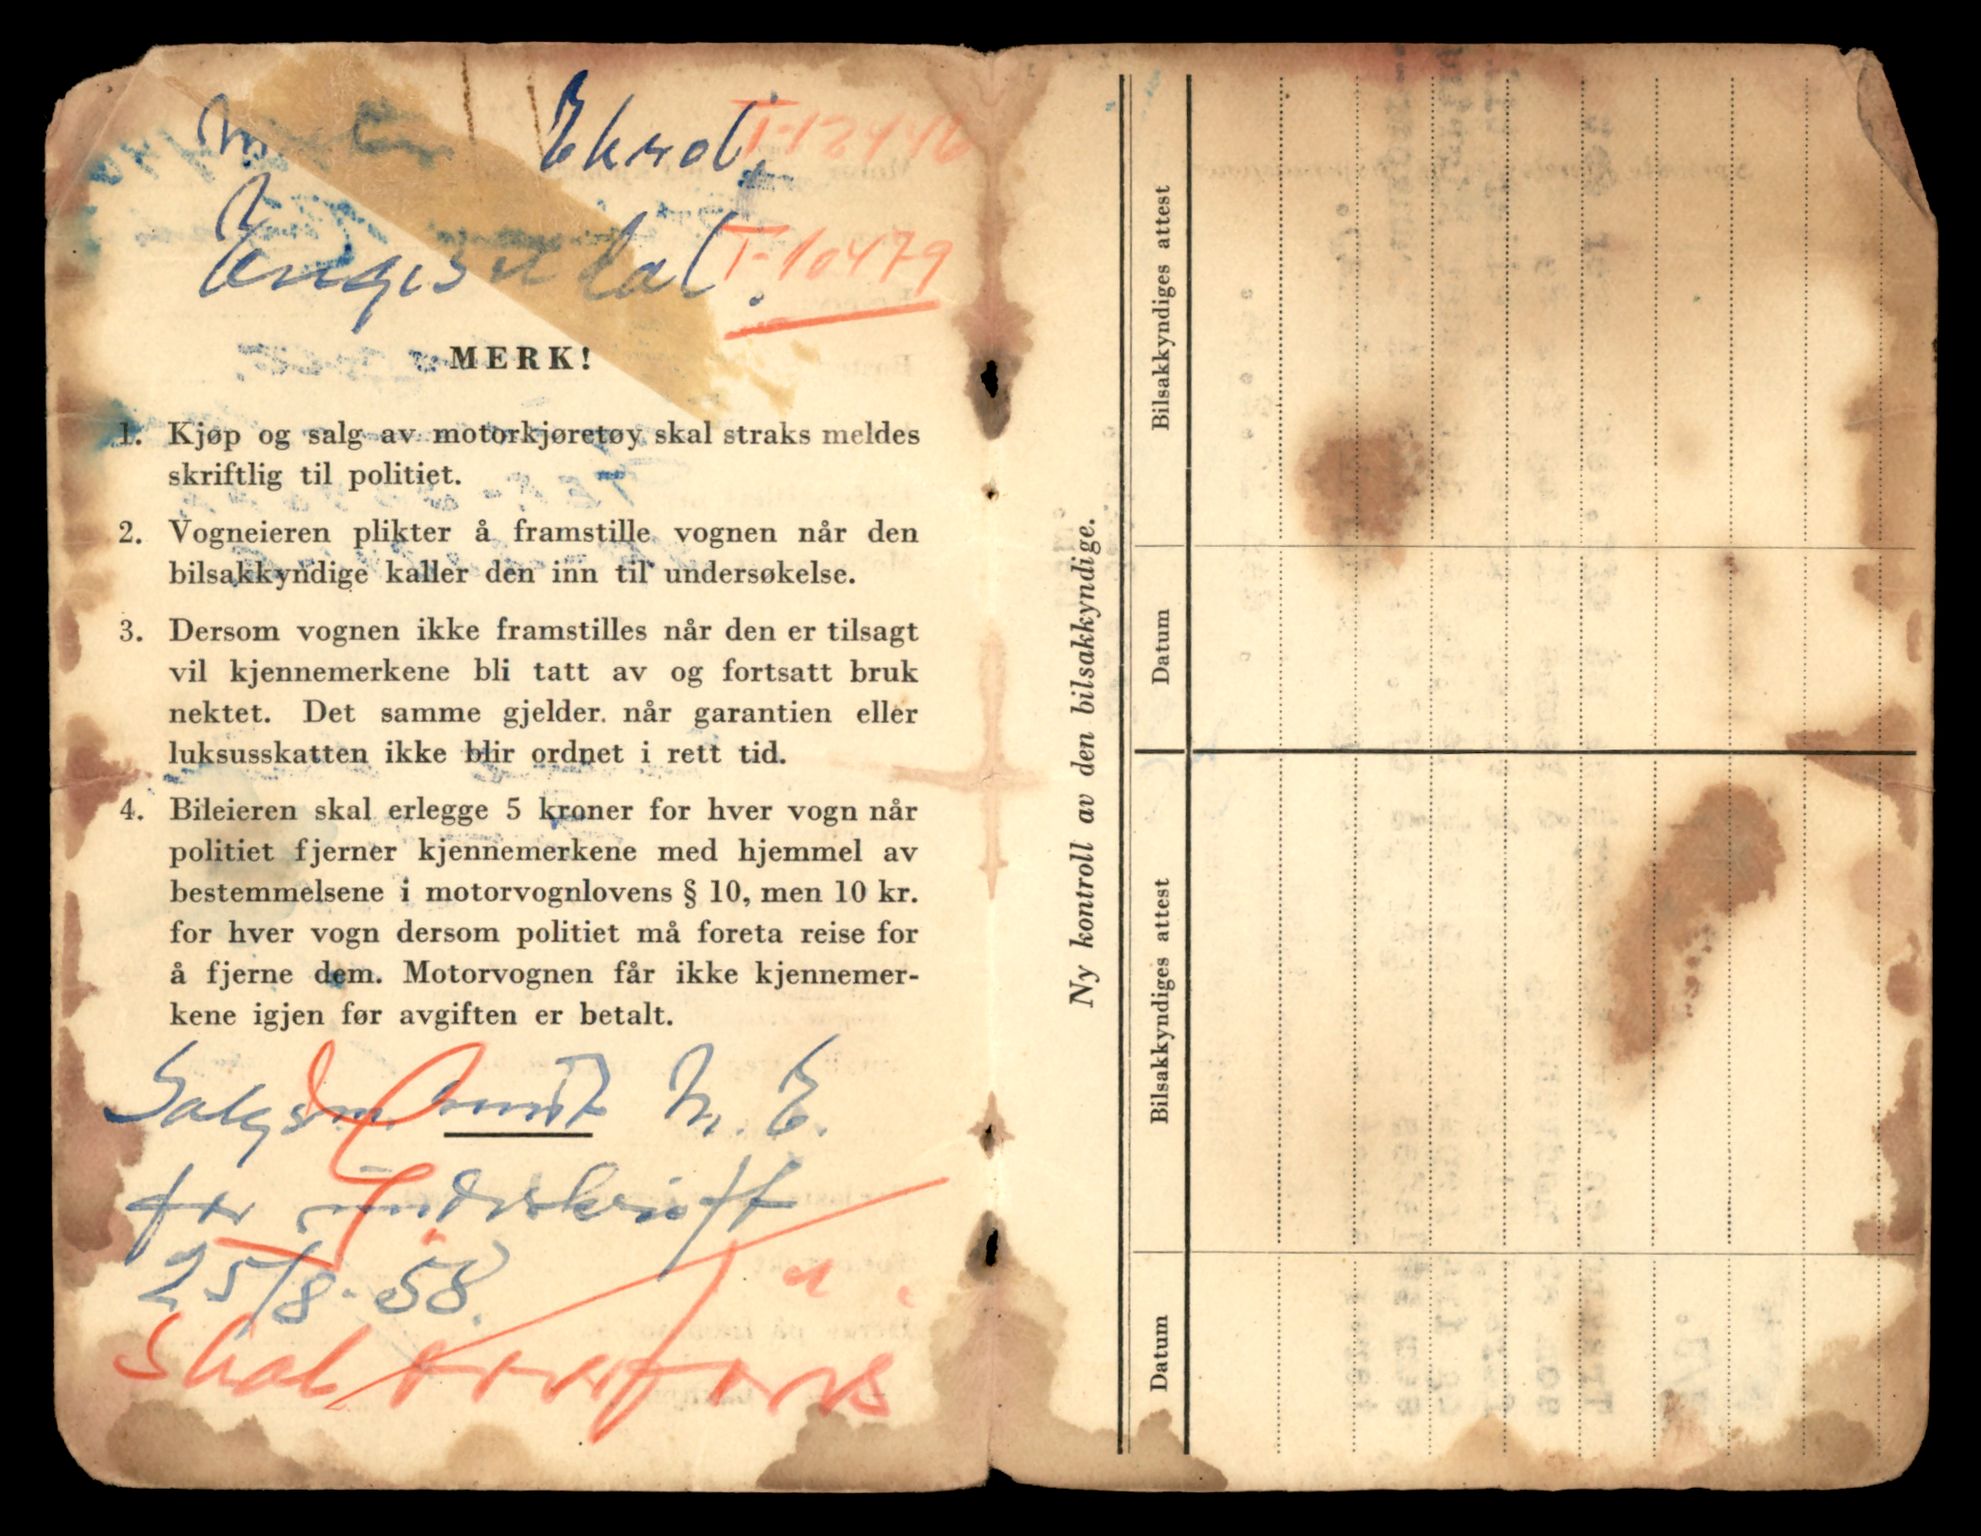 Ekrol, T-12446
Engisdal. T-10479
MERK!
1. Kjøp og salg av motorkjøretøy skal straks meldes
skriftlig til politiet.
2. Vogneieren plikter å framstille vognen når den
bilsakkyndige kaller den inn til undersøkelse.
3. Dersom vognen ikke framstilles når den er tilsagt
vil kjennemerkene bli tatt av og fortsatt bruk
nektet. Det samme gjelder når garantien eller
luksusskatten ikke blir ordnet i rett tid.
4. Bileieren skal erlegge 5 kroner for hver vogn når
politiet fjerner kjennemerkene med hjemmel av
bestemmelsene i motorvognlovens § 10, men 10 kr.
for hver vogn dersom politiet må foreta reise for
å fjerne dem. Motorvognen får ikke kjennemer-
kene igjen før avgiften er betalt.
Salgsm. sendt M. E.
for underskrift
25/8-58.
Skal
Ny kontroll av den bilsakkyndige.
Datum
Bilsakkyndiges attest
Datum
Bilsakkyndiges attest